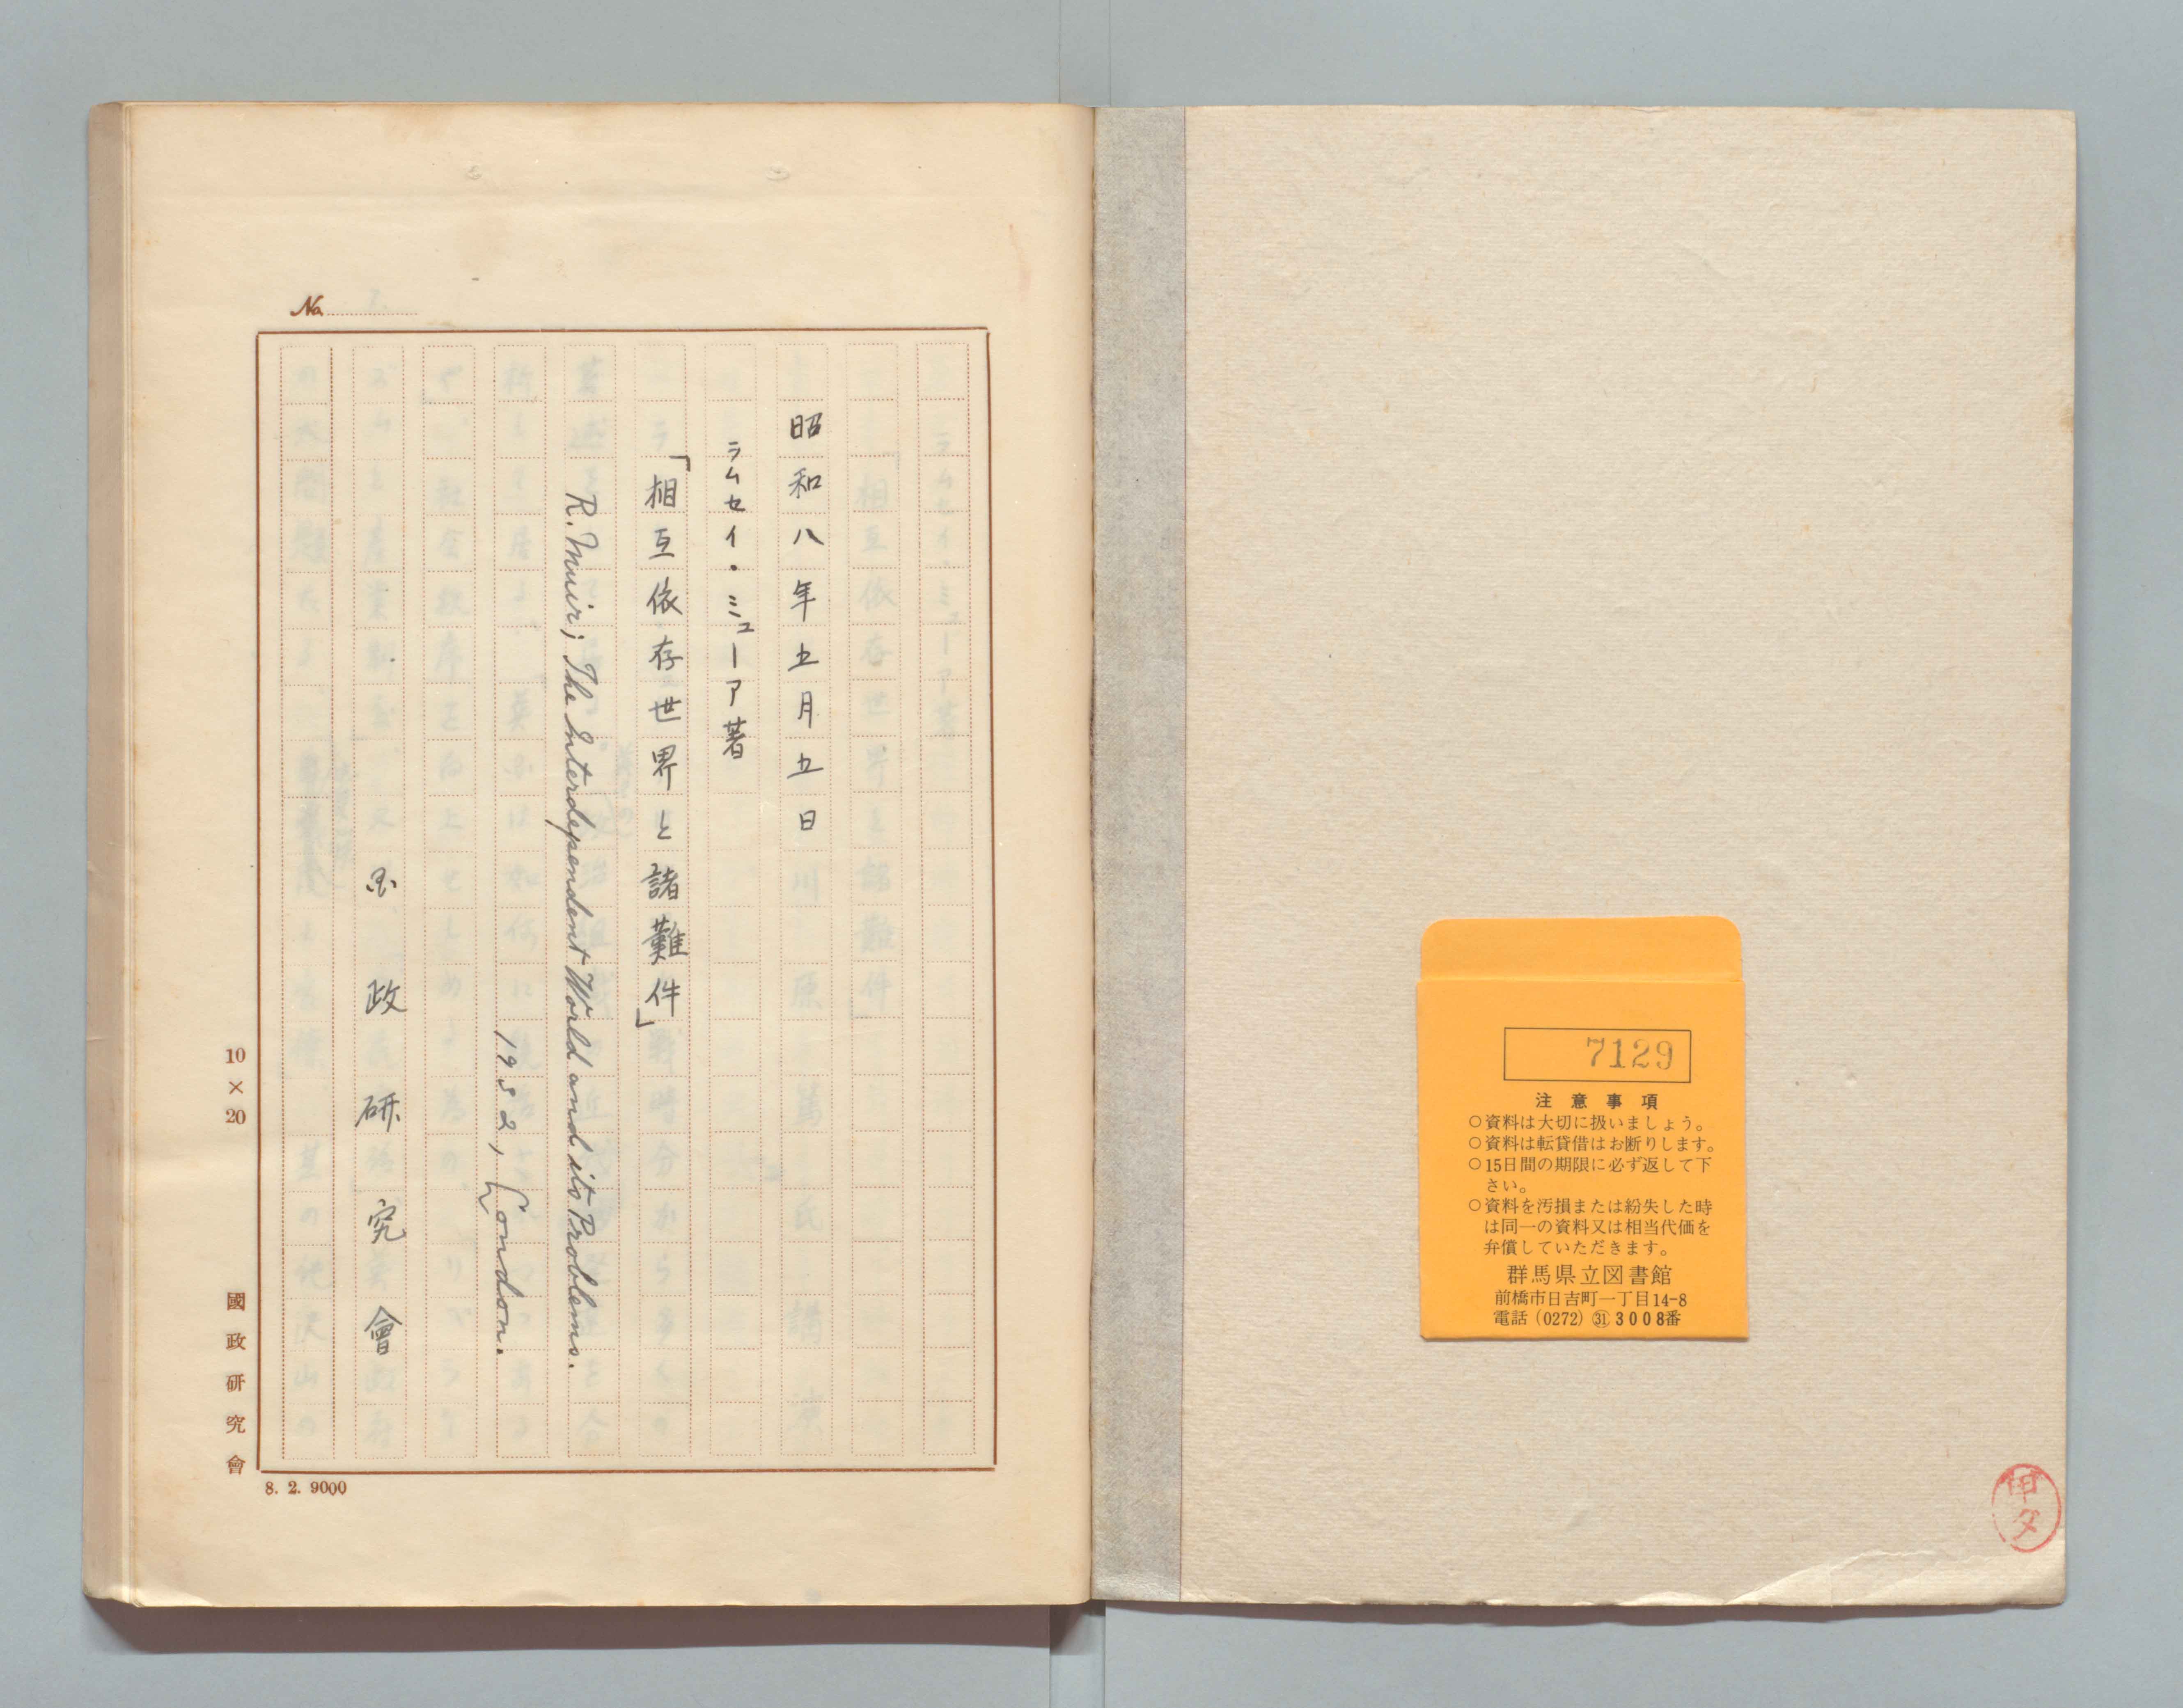 7129
注意事項
○資料は大切に扱いましょう。
○資料は転貸借はお断りします。
○15日間の期限に必ず返して下
さい。
○資料を汚損または紛失した時
は同一の資料又は相当代価を
弁償していただきます。
群馬県立図書館
前橋市日吉町一丁目14-8
電話 (0272) ㉛ 3008番
昭和八年五月五日
ラムセイ・ミューア著
「相互依存世界と諸難件」
R. Muir; The Interdependent World and its Problems.
1932, London.
政研究會
No.
10×20
國政研究會
8. 2. 9000